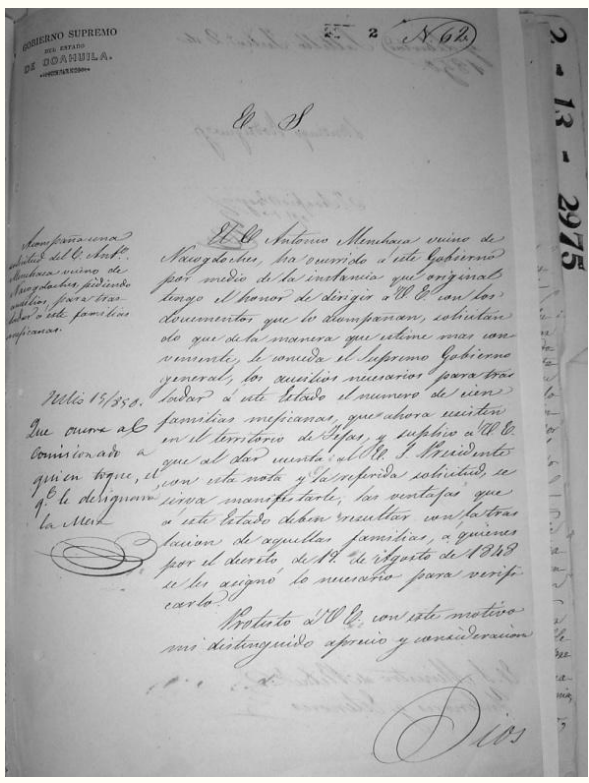 GOBIERNO SUPREMO
DEL ESTADO
DE COAHUILA.
2
N. 62
2-13-2975
E. S.
Acompaña una
solicitud del C. Anto.
Menchaca vecino de
Nacogdoches, pidiendo
ausilios, para tras
ladar á este familias
mejicanas.
Julio 15/850.
Que ocurra al
comisionado a
quien toque, el
q.e le designara
la Mesa
El C. Antonio Menchaca vecino de
Nacogdoches, ha ocurrido á este Gobierno
por medio de la instancia que original
tengo el honor de dirigir a V. E. con los
documentos que lo acompañan, solicitan
do que de la manera que estime mas con
veniente, le conceda el Supremo Gobierno
general, los ausilios necesarios para tras
ladar á este Estado el numero de cien
familias mejicanas, que ahora ecsisten
en el territorio de Tejas, y suplico a V. E.
que al dar cuenta al E. S. Presidente
con esta nota y la referida solicitud, se
sirva manifestarle, las ventajas que
á este Estado deben resultar con la tras
lacion de aquellas familias, a quienes
por el decreto de 19 de Agosto de 1848
se les asignó lo necesario para verifi
carlo.
Protesto á V. E. con este motivo
mi distinguido aprecio y consideracion
Dios